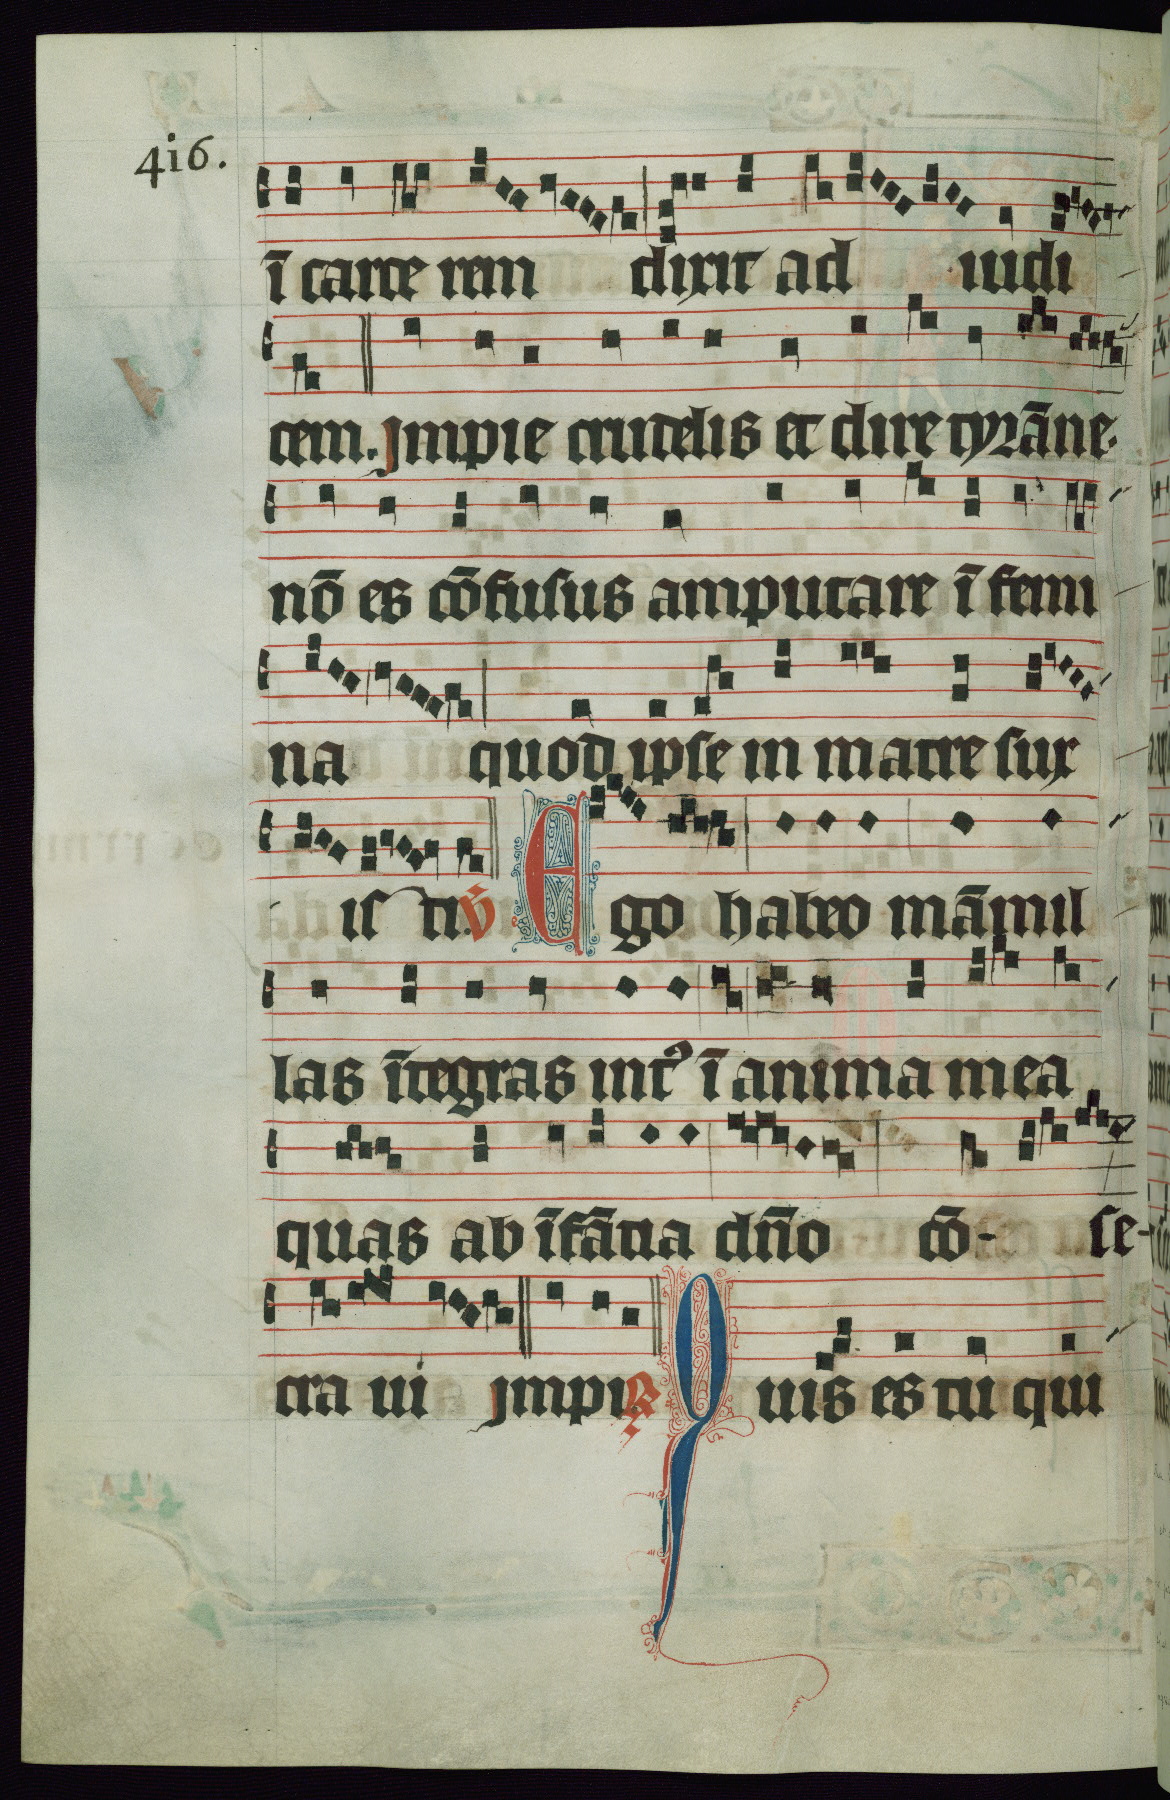 416.
ī carce rem dixit ad iudi
cem. Jmpie crudelis et dire tyrāne
nō es cōfusus amputare ī femi
na quod ipse in matre sux
is ti. V Ego habeo māmil
las ītegras int᾽ ī anima mea
quas ab īfātia dño cō- se-
cra ui Jmpi. R Quis es tu qui